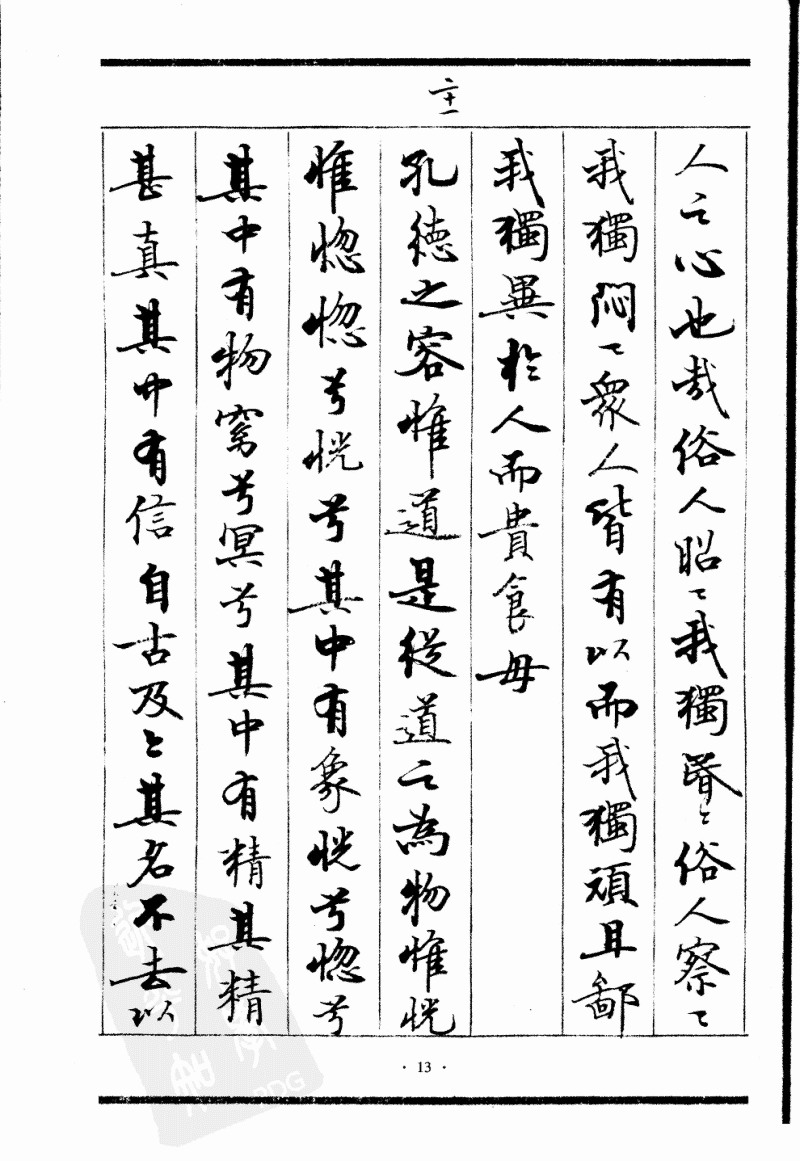 二十一
人之心也哉俗人昭〻我獨昬〻俗人察〻
我獨悶〻衆人皆有以而我獨頑且鄙
我獨異於人而貴食母
孔德之容惟道是從道之為物惟恍
惟惚惚兮恍兮其中有象恍兮惚兮
其中有物窈兮冥兮其中有精其精
甚真其中有信自古及今其名不去以
· 13 ·